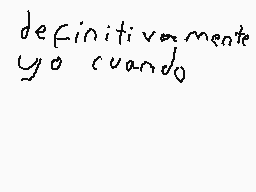 definitivamente
yo cuando